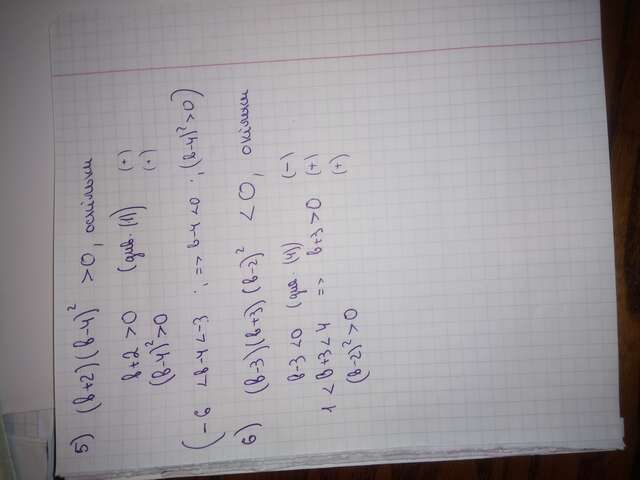 5) (b+2)(b-4)² >0, оскільки
b+2>0 (див. (1)) (+)
(b-4)²>0 (+)
(-6 <b-4<-3 ; => b-4<0 ; (b-4)²>0)
6) (b-3)(b+3)(b-2)² <0, окільки
b-3<0 (див. (4)) (-)
1<b+3<4 => b+3>0 (+)
(b-2)²>0 (+)